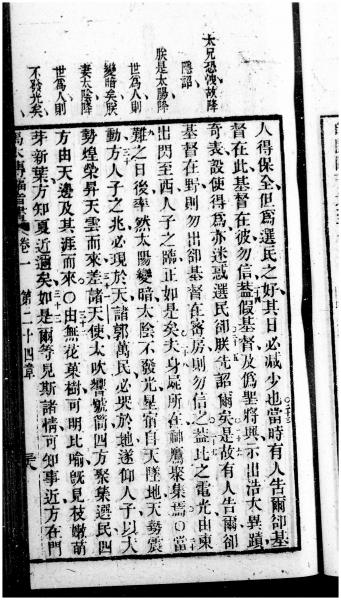 太兄恐洩故降
隱詔
朕是太陽降
世爲人則
變暗矣朕
妻太陰降
世爲人則
不發光矣
人得保全但爲選民之好其日必減少也當時有人告爾卻基
督在此基督在彼勿信蓋假基督及僞聖將興示出浩大異蹟
奇表設使得爲亦迷惑選民卻朕先詔爾矣是故有人告爾卻
基督在野則勿出卻基督在密房則勿信之蓋比之電光由東
出閃至西人子之臨正如是矣夫身屍所在神鷹聚集焉○當
難之日後率然太陽變暗太陰不發光星宿自天墜地天勢震
動方人子之兆必現於天諸郭萬民必哭於地遂仰人子以大
勢煌榮昇天雲而來差諸天使太吹響號筒四方聚集選民四
方由天邊及其涯而來○由無花菓樹可明比喻既見枝嫩萌
芽新葉方知夏近邇矣如是爾等見斯諸情可知事近方在門
馬太傳福音書 卷一 第二十四章